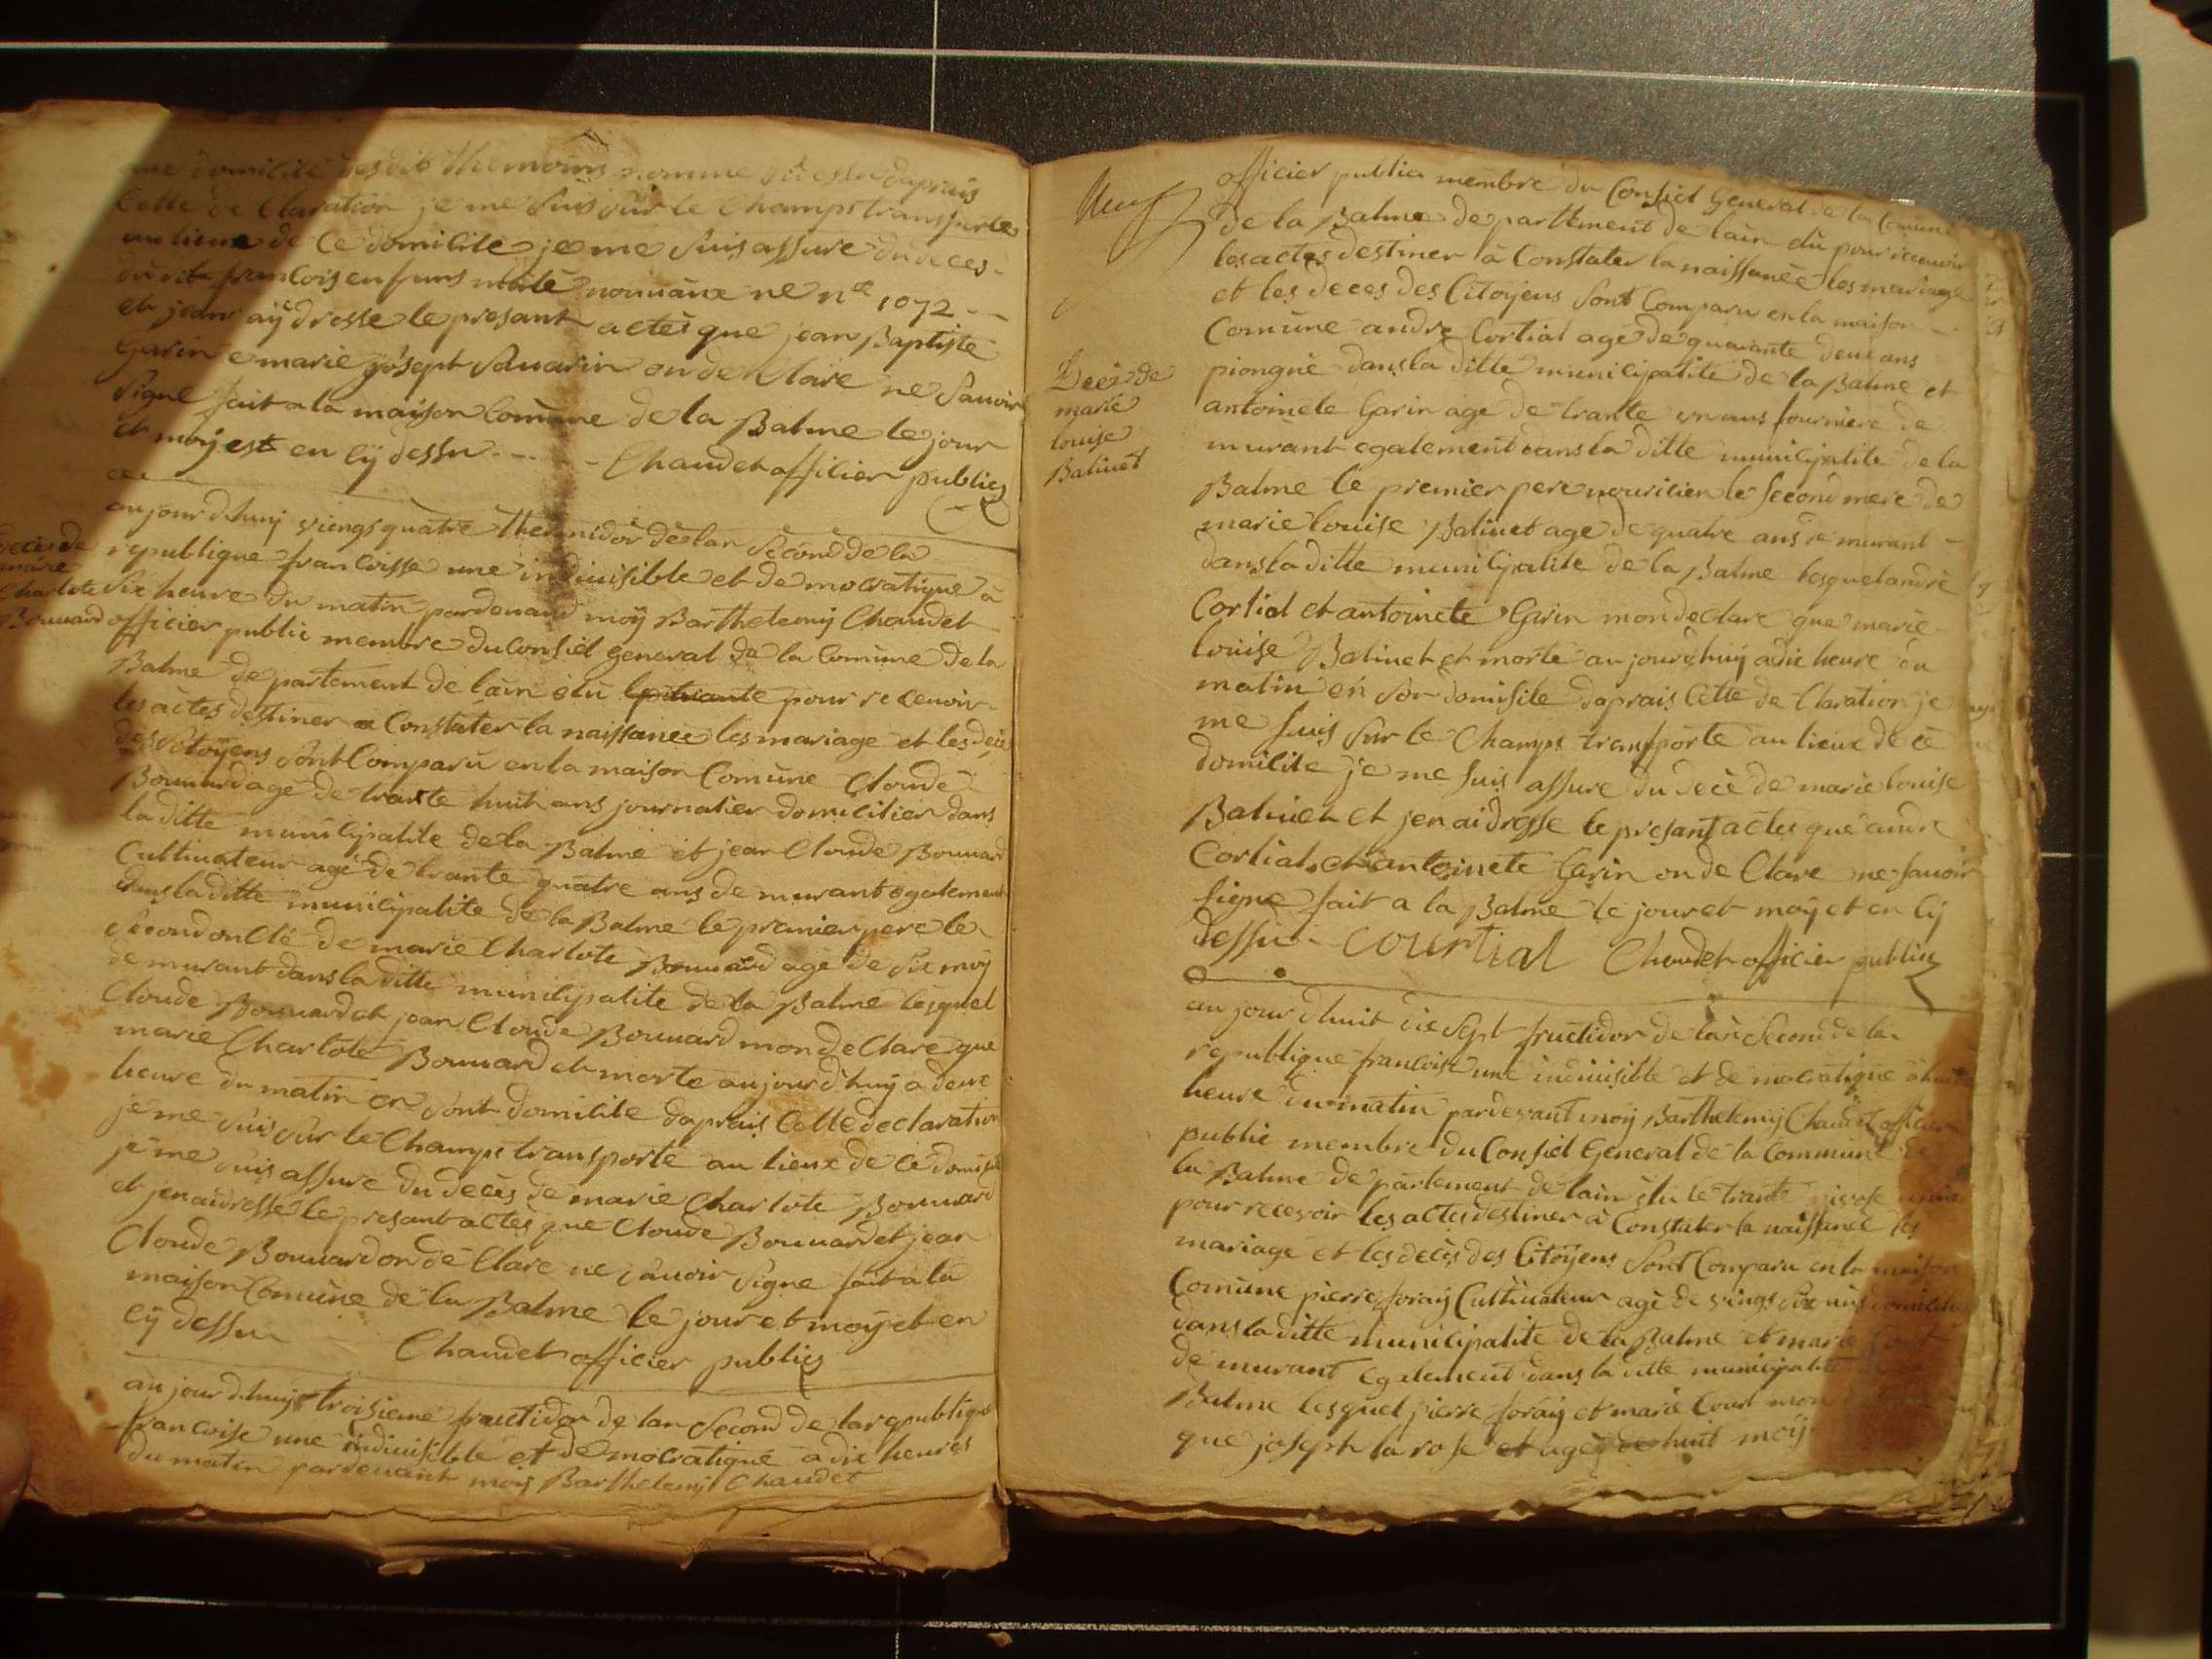 aux domicile desdis themoins nomme sidessu daprais
Cette de Claration je me suis sur le Champs transporte
au lieux de Ce domicile je me suis assure du deces
du dit francois enfans mâle nouvaux ne n.e 1072
et jean aÿ dresse le presant actes que jean Baptiste
Garin e marie joseph Savarin on de Clare ne Savoir
signe fait a la maison Comune de la Balme le jour
et moÿ est en cÿ dessu Chaudet officier publics
aujourdhuij vingt quatre thermidor de lan Second de la
republique francoisse une indivisible et democratique à
six heure du matin pardevand moÿ Barthelemij Chaudet
officier public membre du Consiel general de la Comune de la
Balme departement de lain élu pour recevoir
les actes destiner a Constater la naissance les mariage et les deces
des Citoÿens sont Comparu en la maison Comune Cloude
Bouvard age de trante huit ans journalier domicilier dans
la ditte municipalite de la Balme et jean Cloude Bouvard
Cultivateur age de trante quatre ans de murant egalement
dans la ditte municipalite de la Balme le premier pere le
Second oncle de marie Charlote Bouvard age de six moÿ
de murant dans la ditte municipalite de la Balme lesquel
Cloude Bouvard et jean Cloude Bouvard mon de Clare que
marie Charlote Bouvard et morte aujourdhuÿ a deux
heure du matin en sont domicile daprais Cette declaration
je me suis sur le Champs transporte au lieux de Ce domicile
je me suis assure du deces de marie Charlote Bouvard
et jen ai dresse le presant actes que Cloude Bouvard et jean
Cloude Bouvard on de Clare ne Savoir Signe fait a la
maison Comune de la Balme le jour et moÿ et en
cÿ dessu Chaudet officier publics
aujourdhuij troisieme fructidor de lan Second de la republique
francoise une indivisible et democratique a dix heures
du matin pardevant moij Barthelemij Chaudet
deces de
marie
Charlote
Bouvard
neuf
officier public membre du Consiel General de la Comune
de la Balme departement de lain élu pour recevoir
les actes destiner à Constater la naissance les mariage
et les deces des Citoÿens sont Comparu en la maison
Comune andre Cortial age de quarante deux ans
piongné dans la ditte municipalite de la Balme et
antoinete Garin age de trante un ans fourniere de
murant egalement dans la ditte municipalite de la
Balme le premier pere nouricier le Second mere de
marie louise Balivet age de quatre ans de murant
dans la ditte municipalite de la Balme lesquel andre
Cortial et antoinete Garin mon declare que marie
louise Balivet et morte aujourdhuij a dix heure du
matin en son domicile daprais Cette de Claration je
me suis sur le Champs transporte au lieux de ce
domicile je me suis assure du decè de marie louise
Balivet et jen ai dresse le presant actes que andre
Cortial et antoinete Garin on de Clare ne savoir
signe fait a la Balme le jour et moÿ et en cÿ
dessu courtial Chaudet officier publics
Decés de
marie
louise
Balivet
au jour dhuit dix sept fructidor de lan Second de la
republique francoise une indivisible et democratique à huit
heure du matin pardevant moÿ Barthelemÿ Chaudet officier
public membre du Consiel General de la Commune de
la Balme departement de lain élu le trante nivose
pour recevoir les actes destiner à Constater la naissance les
mariage et les decès des Citoÿens sont Comparu en la maison
Comune pierre foraÿ Cultivateur agé de vingt six ans domicilie
dans la ditte municipalite de la Balme et marie Court
de murant egalement dans la ditte municipalite de la
Balme lesquel pierre foraÿ et marie Court mon
que joseph larose et age de huit moÿ